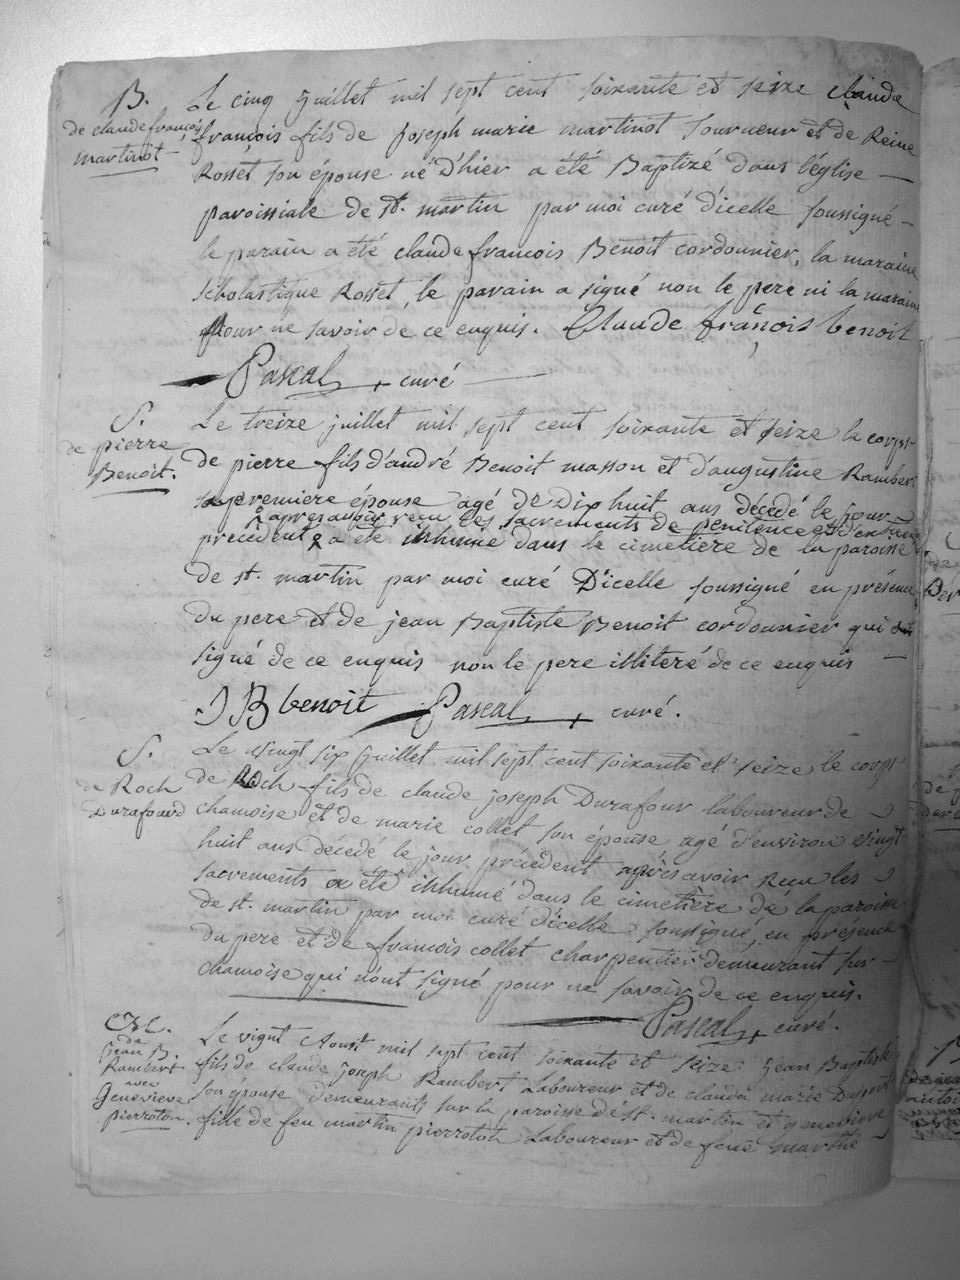 B.
de claude françois
martinot
Le cinq juillet mil sept cent soixante et seize claude
françois fils de joseph marie martinot Tourneur et de Reine
Rosset son épouse né d'hier a été Baptizé dans l'église
paroissiale de st. martin par moi curé d'icelle soussigné
le parain a été claude françois Benoit cordonnier, la maraine
scholastique Rosset, le parain a signé non le pere ni la maraine
pour ne savoir de ce enquis. Claude françois benoit
Pascal curé
S.
de pierre
Benoit.
Le treize juillet mil sept cent soixante et seize le corps
de pierre fils d'andré Benoit masson et d'augustine Rambert
sa premiere épouse agé de Dix huit ans décédé le jour
après avoir recu les sacrements de penitence et d'ext
précédent a été inhumé dans le cimetière de la paroisse
de st. martin par moi curé D'icelle soussigné en présence
du pere et de jean Baptiste Benoit cordonnier qui
signé de ce enquis non le pere illiteré de ce enquis
J B benoit Pascal curé.
S.
de Roch
Durafourd
Le vingt six juillet mil sept cent soixante et seize le corps
de Roch fils de claude joseph Durafour laboureur de
chamoise et de marie collet son épouse agé d'environ vingt
huit ans décédé le jour précédent après avoir recu les
sacrements a été inhumé dans le cimetière de la paroisse
de st. martin par moi curé d'icelle soussigné, en présence
du pere et de francois collet charpentier demeurant sur
chamoise qui n'ont signé pour ne savoir de ce enquis.
Pascal curé.
de
jean B.
Rambert
avec
Genevieve
pierroton.
Le vignt Aoust mil sept cent soixante et seize jean Baptiste
fils de claude joseph Rambert Laboureur et de claude marie
son épouse demeurants sur la paroisse de st. martin et genevieve
fille de feu martin pierroton Laboureur et de feue marthe